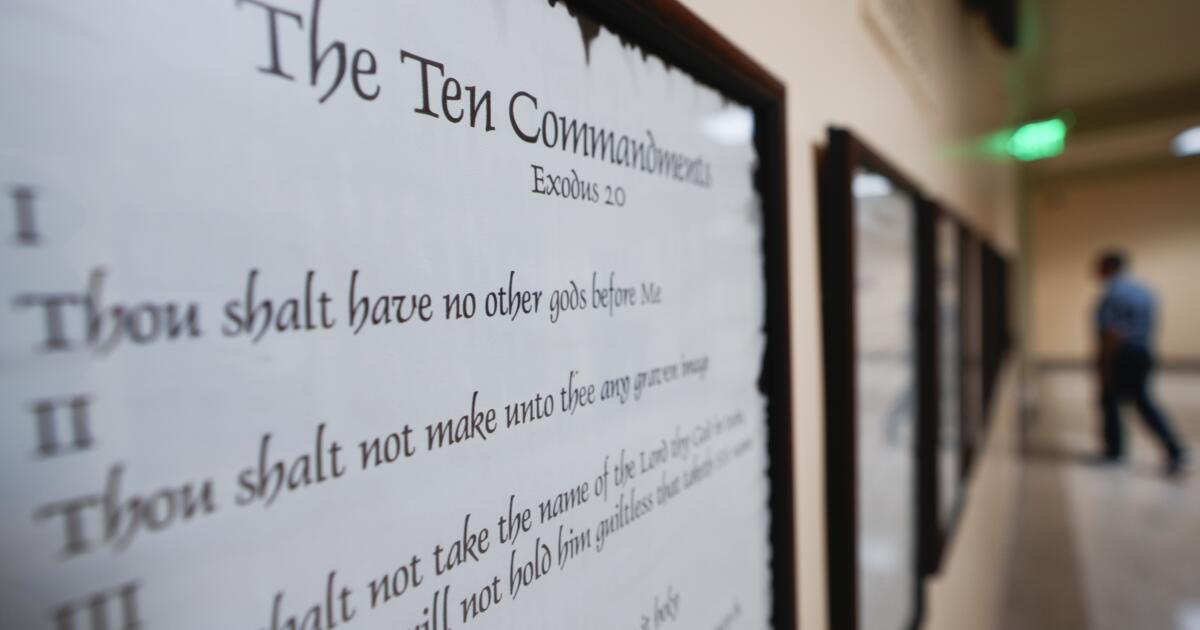 The Ten Commandments
Exodus 20
I
Thou shalt have no other gods before Me
II
Thou shalt not make unto thee any graven image
III
shalt not take the name of the Lord thy God in vain,
will not hold him guiltless that taketh His name
it holy